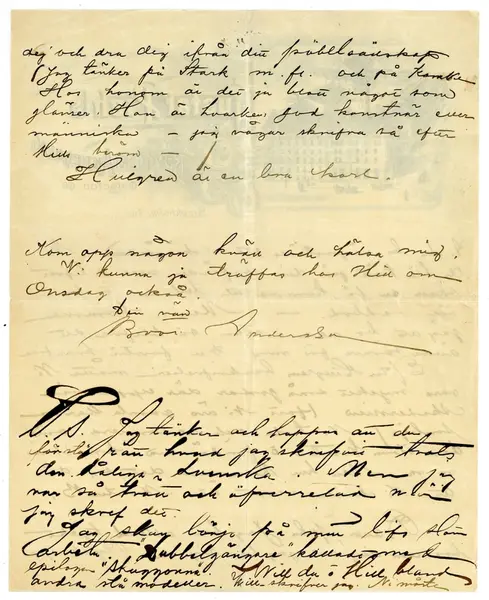 dig och dra dig ifrån ditt
jag tänker på Stark m. fl. och på
Hos honom är det ju blott något som
glänser. Han är hvarken god konstnär eller
människa – jag vågar skrifva så efter
Hills beröm –
är en bra karl.
Kom opp någon kväll och hälsa mig.
Vi kunna ju träffas hos Hill om
Onsdag också.
Din vän
Anderson
P.S. Jag tänker och hoppas att du
förstår hvad jag skrifvit trots
den dåliga Svenska. Men jag
var så trött och öfverretad när
jag skref det.
Jag skall börja på min lifs stora
arbete, "Dubbelgängare" kallad med
epilogen Will du o Hill bland
andra stå modeller. Hills skrifver jag. Ni måste